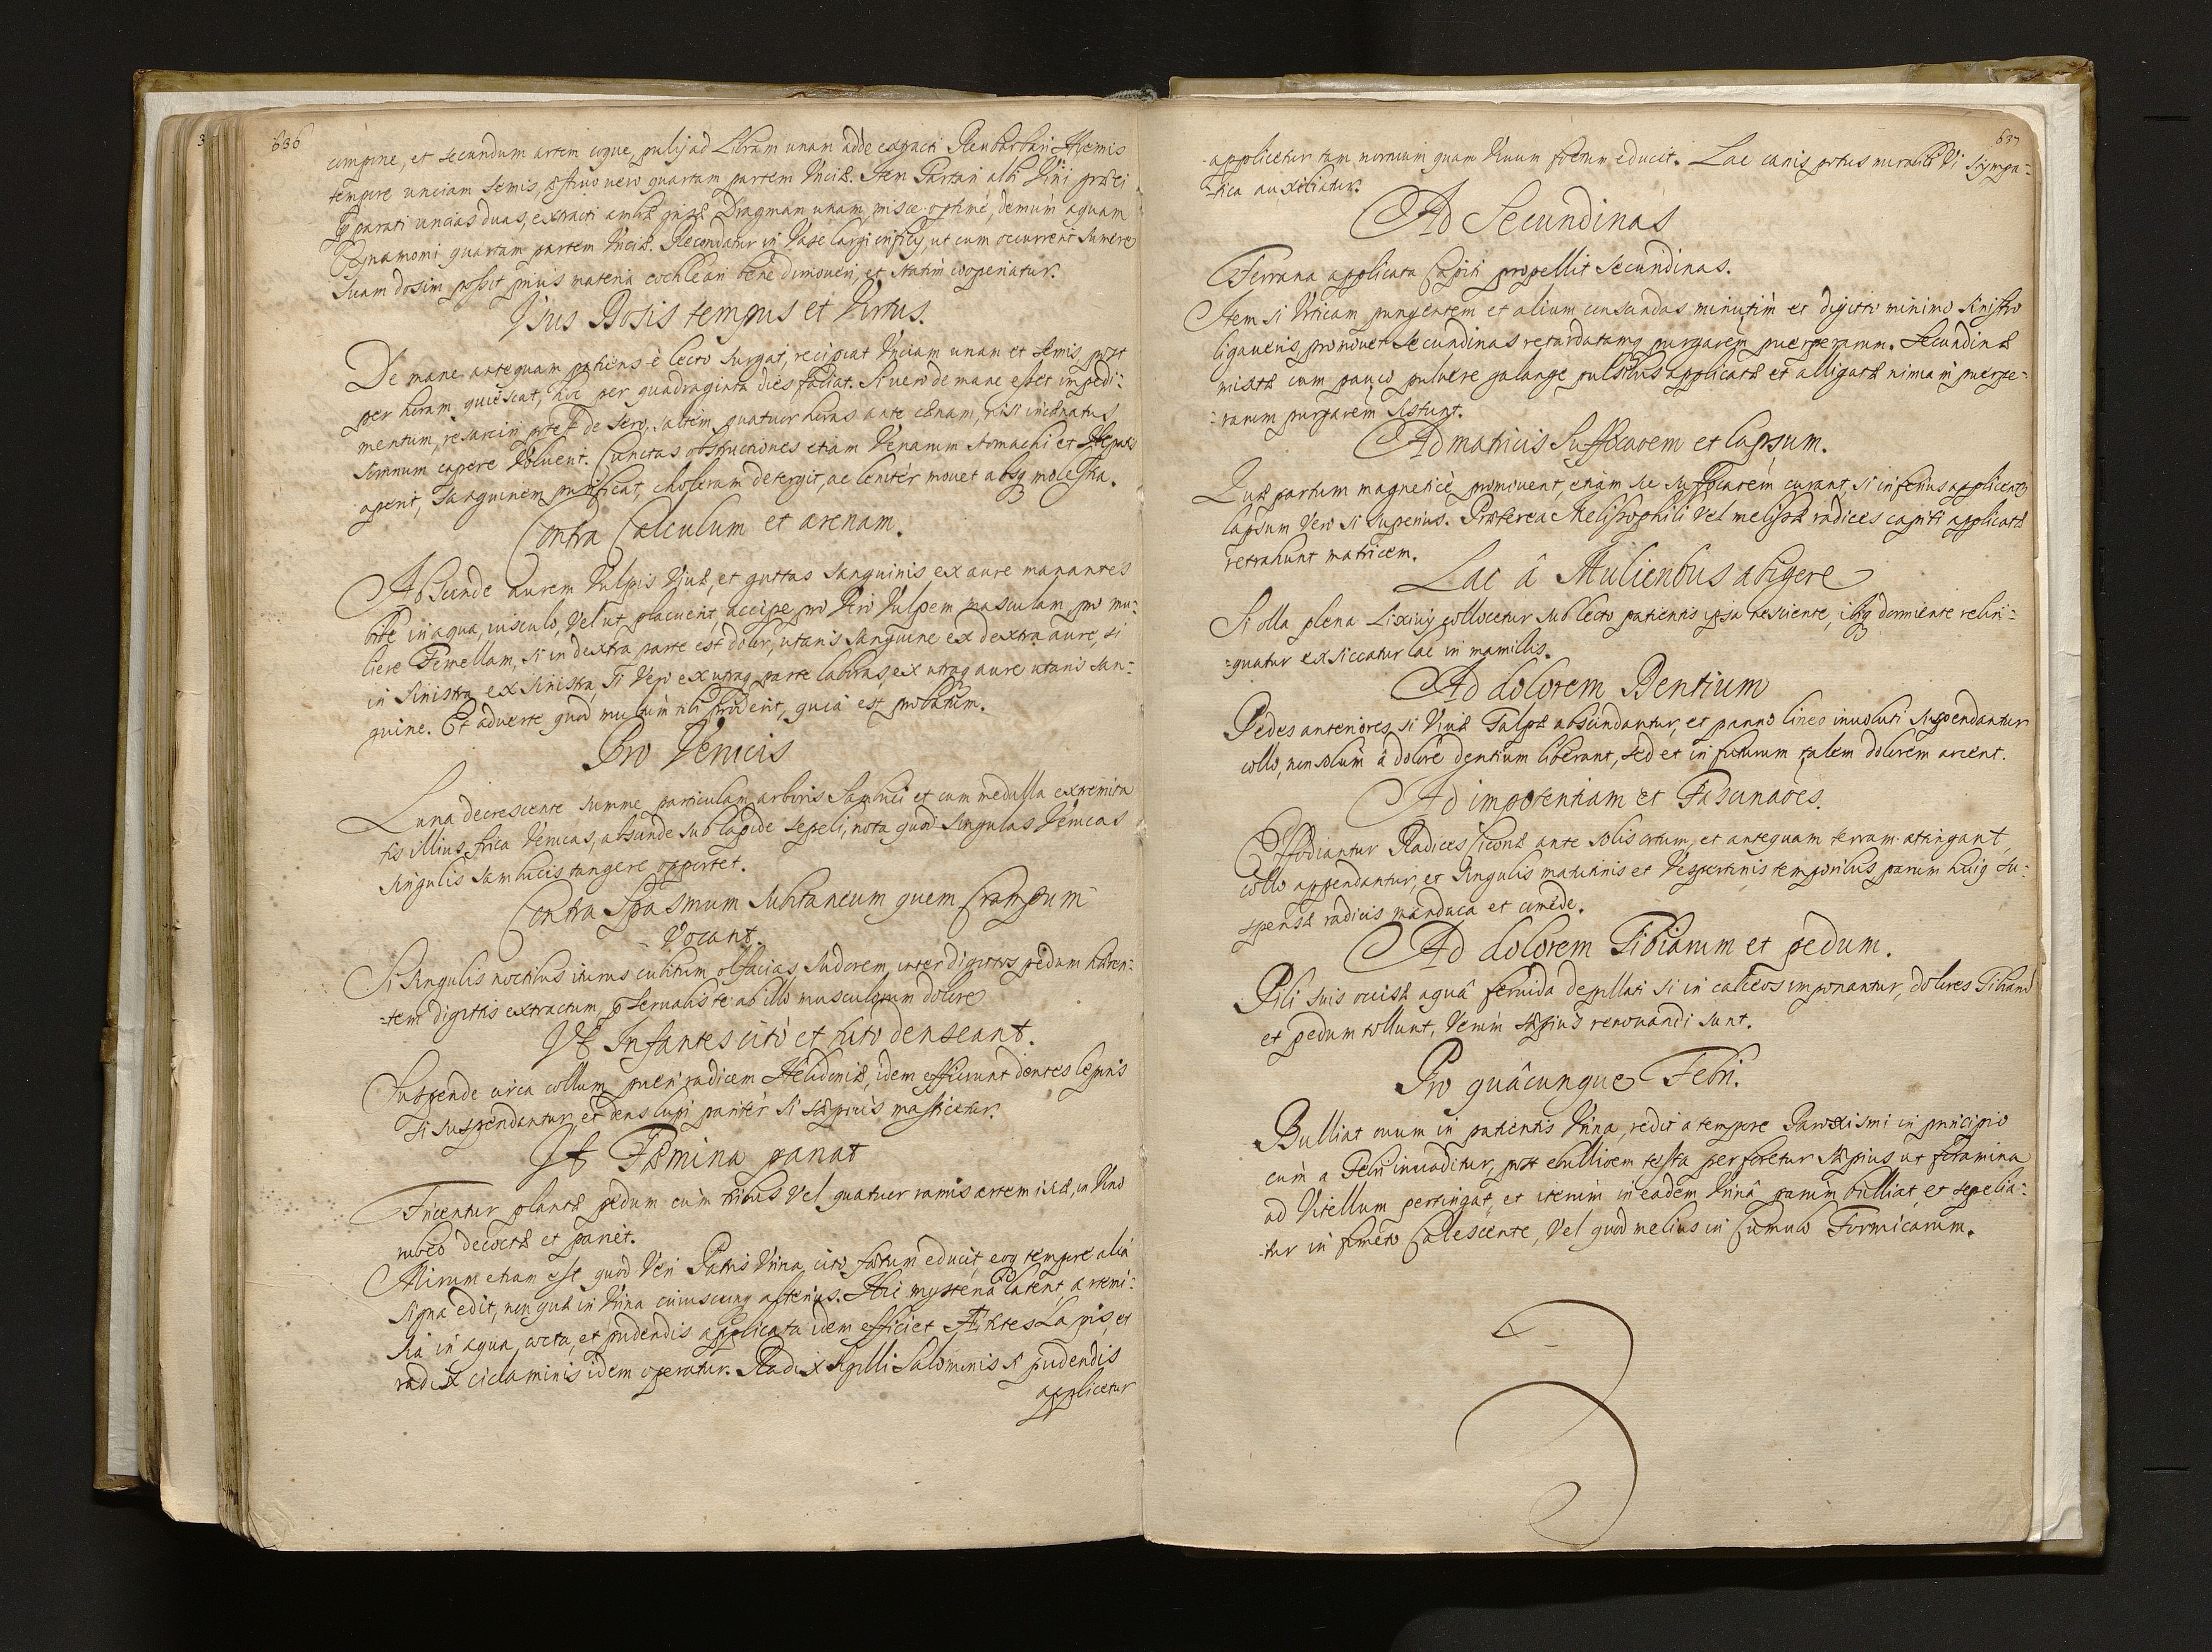 636
compone, et secundum artem coque, pulij ad Libram unam adde extracti Reubarbari Hyemis
tempore unciam semis, estivo vero quartam partem Unciæ. Item Tartari albi Vini præci
parati uncias duas, extracti ambræ griseæ Dragmam unam, misce optimè, demùm aquam
Cynamomi quartam partem Unciæ. Recondatur in Vase largi orificij, ut cum occurrerit sumere
suam dosim possit prius materia cochleari bene dimoveri, et statim cooperiatur.
Usus Dosis tempus et Virtus.
De mane antequam patiens è lecto surgat, recipiat Unciam unam et semis, post
per horam quiescat, hoc per quadraginta dies faciat. Si vero de mane esset impedi-
mentum, resarciri potest de sero, saltem quatuor horas ante cænam, nisi incænatus
somnum capere voluerit. Cunctas obstructiones etiam Venarum stomachi et Hepatis
aperit, sanguinem purificat, choleram detergit, ac leniter movet absq molestia.
Contra Calculum et arenam.
Abscinde aurem Vulpis Vivæ, et guttas sanguinis ex aure manantes
bibe in aqua, iusculo, Vel ut placuerit, accipe pro Viro Vulpem masculam, pro mu-
liere Femellam, si in dextra parte est dolor, utaris sanguine ex dextra aure, si
in sinistra ex sinistra, si Vero ex utraq parte laboras, ex utraq aure utaris san-
guine. Et adverte quod multùm tibi proderit, quia est probatum.
Pro Verrucis
Luna decrescente summe particulam arboris Sambuci et cum medulla extremita
tis illius frica Verrucas, abscinde sub lapide sepeli, nota quod singulas Verrucas
singulis sambucis tangere opportet.
Contra Spasmum subitaneum quem Crampum
Vocant.
Si singulis noctibus iturus cubitum olfacias sudorem inter digittos pedum hæren-
-tem digittis extractum, pservabis te ab illo musculorum dolore
Ut Infantes citò et tutò denseant.
Suspende circa collum pueri radicem Helidoniæ, idem efficiunt dentes leporis
si suspendantur, et dens lupi pariter si sæpius masticetur.
Ut Fæmina pariat
Fricentur plantæ pedum cum tribus Vel quatuor ramis artemisiæ, in Vino
rubeo decoctæ et pariet.
Mirum etiam est quod Veri Patris Urina cito fætum educit, eoq tempore alia
signa edit, non quæ in Urina cuiuscunq alterius. Hic mysteria latent, artemi-
sia in aqua cocta, et pudendis applicata idem efficiet Ætites Lapis, et
radix ciclaminis idem operatur. Radix Sigilli Salomonis si pudendis
applicetur
637
applicetur tam mortuum quam Vivum foetum educit. Lac canis potus mirabili Vi Sympa-
-tica auxiliatur.
Ad Secundinas
Ferrana applicata Capiti propellit secundinas.
Item si Urticam pungentem et alium contundas minutim et digitto minimo sinistro
ligaveris, promovet secundinas retardatamq purgaem puerperarum. Secundinæ
mixtæ cum pauco pulvere galange pulsibus applicatæ et alligatæ nimiam puerpe-
-rarum purgaem sistunt.
Ad matricis Suffocaoem et lapsum.
Quæ partum magneticè promovent, etiam sic suffocaoem curant, si inferius applicentur
lapsum Vero si superius. Præterea Melissophili Vel melissæ radices capiti applicatæ
retrahunt matricem.
Lac â Mulieribus abigere
Si olla plena Lixivij collocetur sub lecto patientis ipsa nesciente, ibiq dormiente relin-
-quatur exsiccatur lac in mamillis.
Ad dolorem Dentium
Pedes anteriores, si Vivæ Talpæ abscindantur, et panno lineo involuti suspendantur
collo, non solum à dolore dentium liberant, sed et in futurum talem dolorem arcent.
Ad impotentiam et Fascinaoes.
Effodiantur Radices Ciconæ ante solis ortum, et antequam terram attingant
collo appendantur, et singulis matutinis et Vespertinis temporibus parum huiq su-
spensæ radicis manduca et comede.
Ad dolorem Tibiarum et pedum.
Pili suis occisæ aquâ fervida depillati si in calceos imponantur, dolores Tibiarum
et pedum tollunt, Verùm sæpius renovandi sunt.
Pro quâcunque Febri.
Bulliat ovum in patientis Urina, reddita tempore Paroxismi in principio
cum a Febri invaditur, post ebullioem testa perforetur sæpius ut foramina
ad Vitellum pertingat, et iterum in eadem Urinâ parùm bulliat, et sepelia-
-tur in fimeto Calescente, Vel quod melius in Cumulo Formicarum.